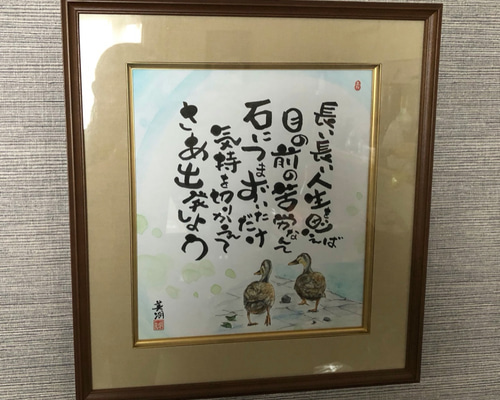 長い長い人生を思えば
目の前の苦労なんて
石につまずいただけ
気持を切りかえて
さあ出発しよう